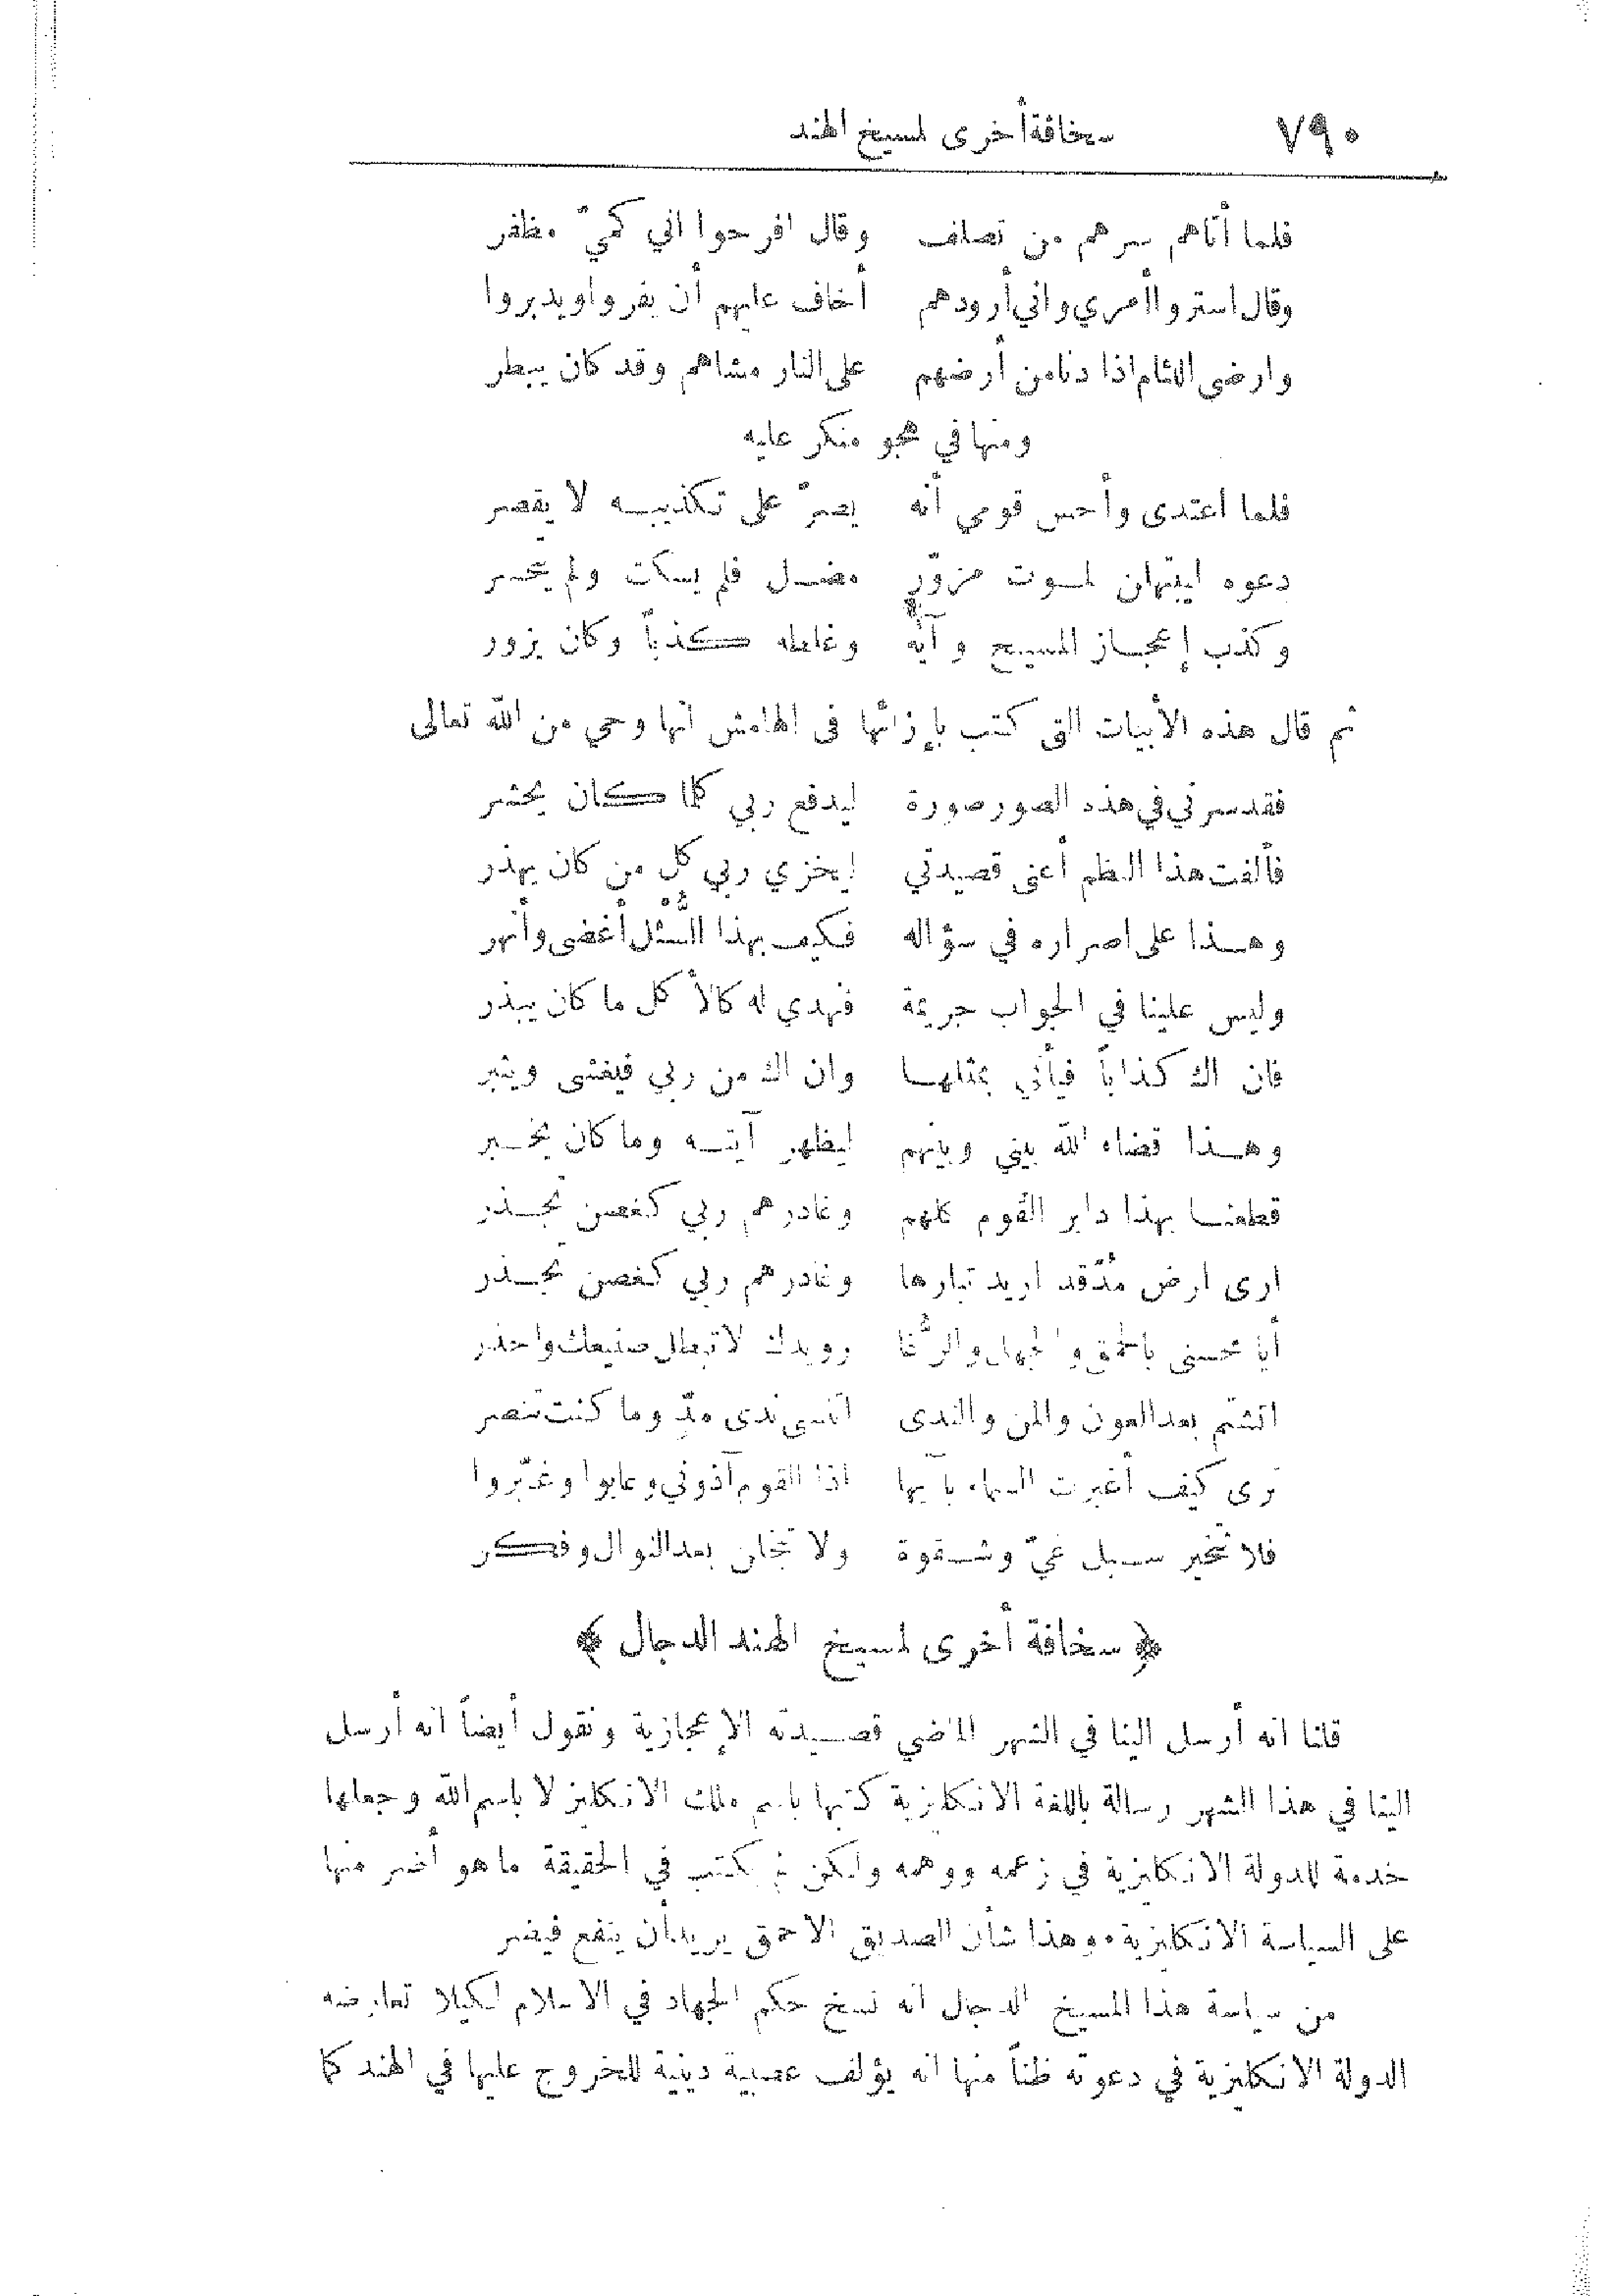 ٧٩٠ سخافة أخرى لمسيخ الهند
فلما أتاهم سرهم من تصلف وقال افرحوا اني كميّ مظفر
وقال استروا أمري واني أرودهم أخاف عليهم أن يفروا ويدبروا
وارضى اللئام اذا دنا من أرضهم على النار مشاهم وقد كان يبطر
ومنها في هجو منكر عليه
فلما اعتدى وأحس قومي أنه يصرّ على تكذيبه لا يقصر
دعوه ليبتهلن لموت مزوّر مضل فلم يسكت ولم يتحسر
وكذب إعجاز المسيح وآيه وغلطه كذباً وكان يزور
ثم قال هذه الأبيات التي كتب بإزائها في الهامش انها وحي من الله تعالى
فقد سرني في هذه الصور صورة ليدفع ربي كلما كان يحشر
فألفت هذا النظم أعني قصيدتي ليخزي ربي كل من كان يهذر
وهذا على اصراره في سؤاله فكيف بهذا السُّئْل أغضى وأنهر
وليس علينا في الجواب جريمة فنهدي له كالأكل ما كان يبذر
فان اك كذاباً فيأتي بمثلها وان اك من ربي فيغشى ويثبر
وهذا قضاء الله بيني وبينهم ليظهر آيته وما كان يخبر
قطعنا بهذا دابر القوم كلهم وغادرهم ربي كغصن تجذر
ارى ارض مُدّ قد اريد تبارها وغادرهم ربي كغصن تجذر
أيا محسني بالحمق والجهل والرُّغا رويدك لا تبطل صنيعك واحذر
اتشتم بعد العون والمن والندى اتنسى ندى مدّ وما كنت تنصر
ترى كيف أغبرت السماء بآيها اذا القوم آذوني وعابوا وغبّروا
فلا تتخير سبل غيّ وشقوة ولا تبخلن بعد النوال وفكر
﴿ سخافة أخرى لمسيخ الهند الدجال ﴾
قلنا انه أرسل الينا في الشهر الماضي قصيدته الإعجازية ونقول أيضاً انه أرسل
الينا في هذا الشهر رسالة باللغة الانكليزية كتبها باسم ملك الانكليز لا باسم الله وجعلها
خدمة للدولة الانكليزية في زعمه ووهمه ولكن لم يكتب في الحقيقة ما هو أضر منها
على السياسة الانكليزية. وهذا شأن الصديق الاحمق يريد أن ينفع فيضر
من سياسة هذا المسيخ الدجال انه نسخ حكم الجهاد في الاسلام لكيلا تعارضه
الدولة الانكليزية في دعوته ظناً منها انه يؤلف عصبية دينية للخروج عليها في الهند كما